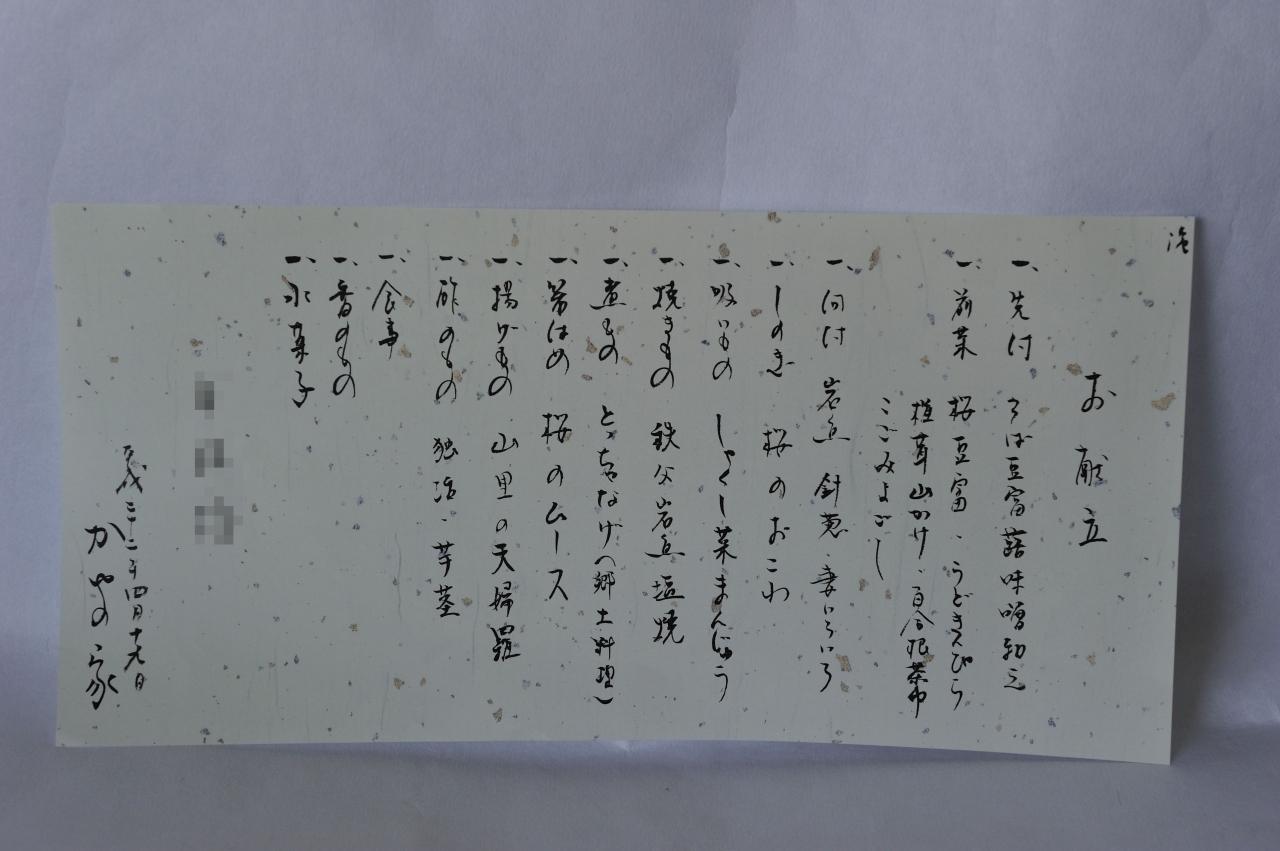 お献立
一、先付 そば豆富蕗味噌和え
一、前菜 桜豆富、うどきんぴら
椎茸山かけ、百合根茶巾
こごみよごし
一、向付 岩魚 針葱 妻いろいろ
一、しのぎ 桜のおこわ
一、吸いもの しゃくし菜まんじゅう
一、焼きもの 秩父岩魚塩焼
一、煮もの とっちゃなげ(郷土料理)
一、箸休め 桜のムース
一、揚げもの 山里の天婦羅
一、酢のもの 独活、芋茎
一、食事
一、香のもの
一、水菓子
平成二十二年四月十九日
かやの家